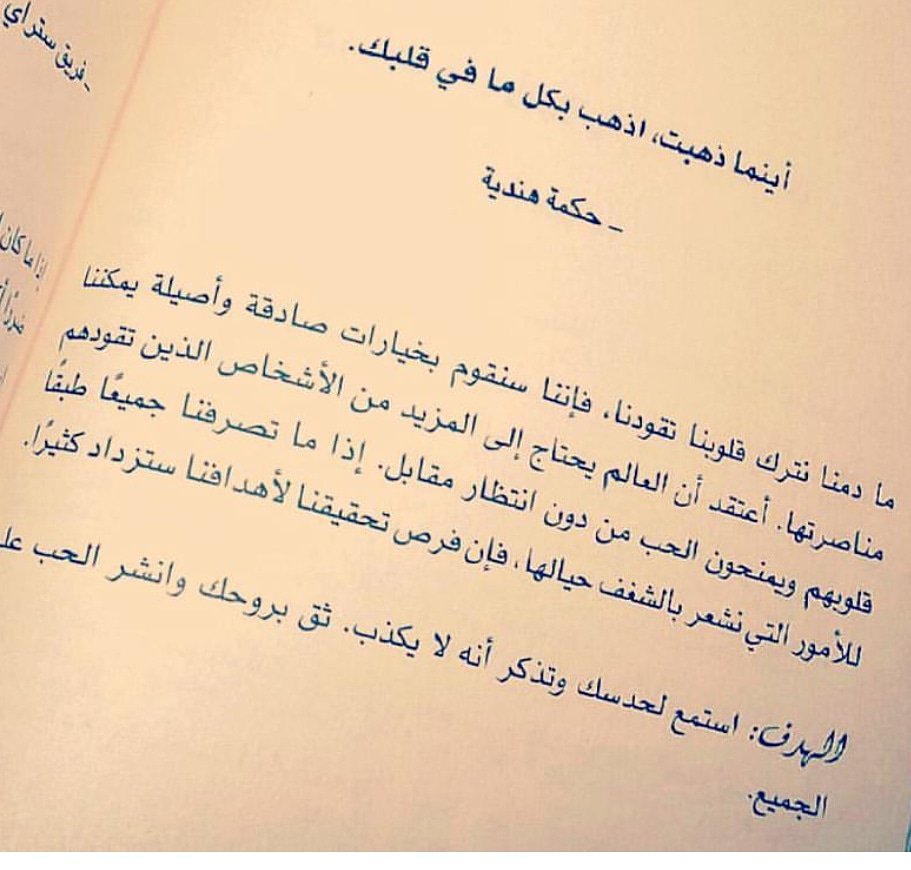 أينما ذهبت، اذهب بكل ما في قلبك.
ـ حكمة هندية
ما دمنا نترك قلوبنا تقودنا، فإننا سنقوم بخيارات صادقة وأصيلة يمكننا
مناصرتها. أعتقد أن العالم يحتاج إلى المزيد من الأشخاص الذين تقودهم
قلوبهم ويمنحون الحب من دون انتظار مقابل. إذا ما تصرفنا جميعًا طبقًا
للأمور التي نشعر بالشغف حيالها، فإن فرص تحقيقنا لأهدافنا ستزداد كثيرًا.
الهدف: استمع لحدسك وتذكر أنه لا يكذب. ثق بروحك وانشر الحب
الجميع.
ـ فريق ستراي
إذا ما كان